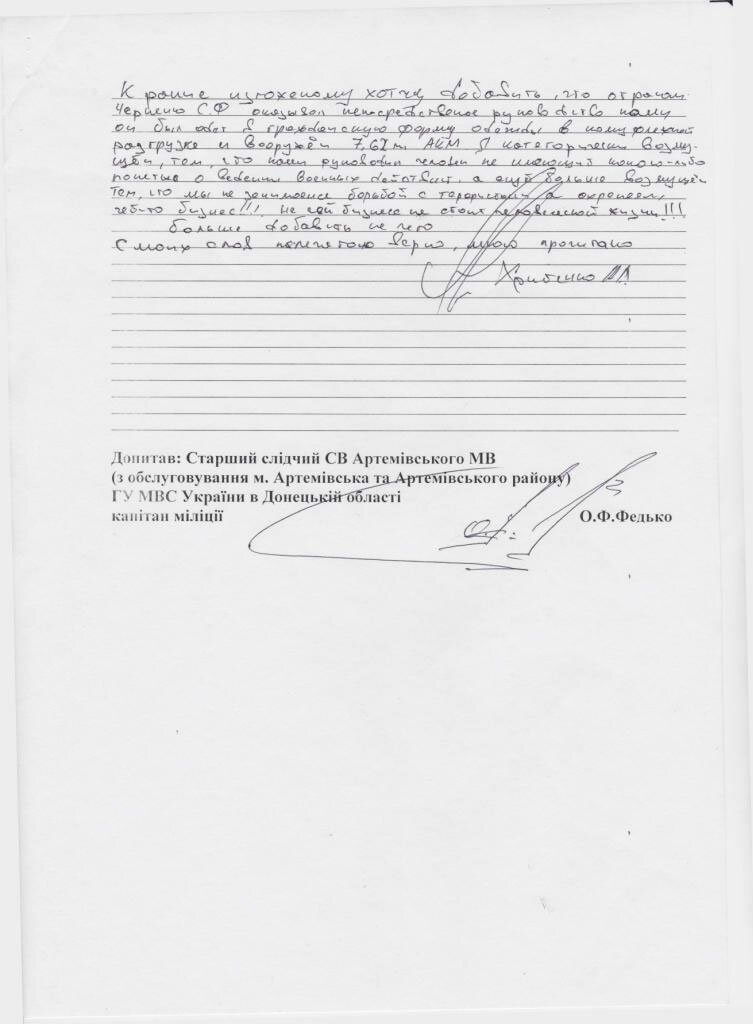 К ранее изложеному хотчу добавить, что отрядом
Черненко С.Ф оказывал непосредственое руководство нами
он был одет в гражданскую форму одежды в камуфляжной
разгрузке и вооружён 7,62 мм АКМ Я категорически возму-
щён, тем, что нами руководил человек не имеющий какого-либо
понятие о ведении военных действий, а ещё больше возмущён
Тем, что мы не занимаемся борьбой с терористами а охраняем,
чей-то бизнес!!! Не один бизнес не стоит человеческой жизни!!!
больше добавить не чего
С моих слов напечатано верно, мною прочитано
Допитав: Старший слідчий СВ Артемівського МВ
(з обслуговування м. Артемівська та Артемівського району)
ГУ МВС України в Донецькій області
капітан міліції О.Ф.Федько